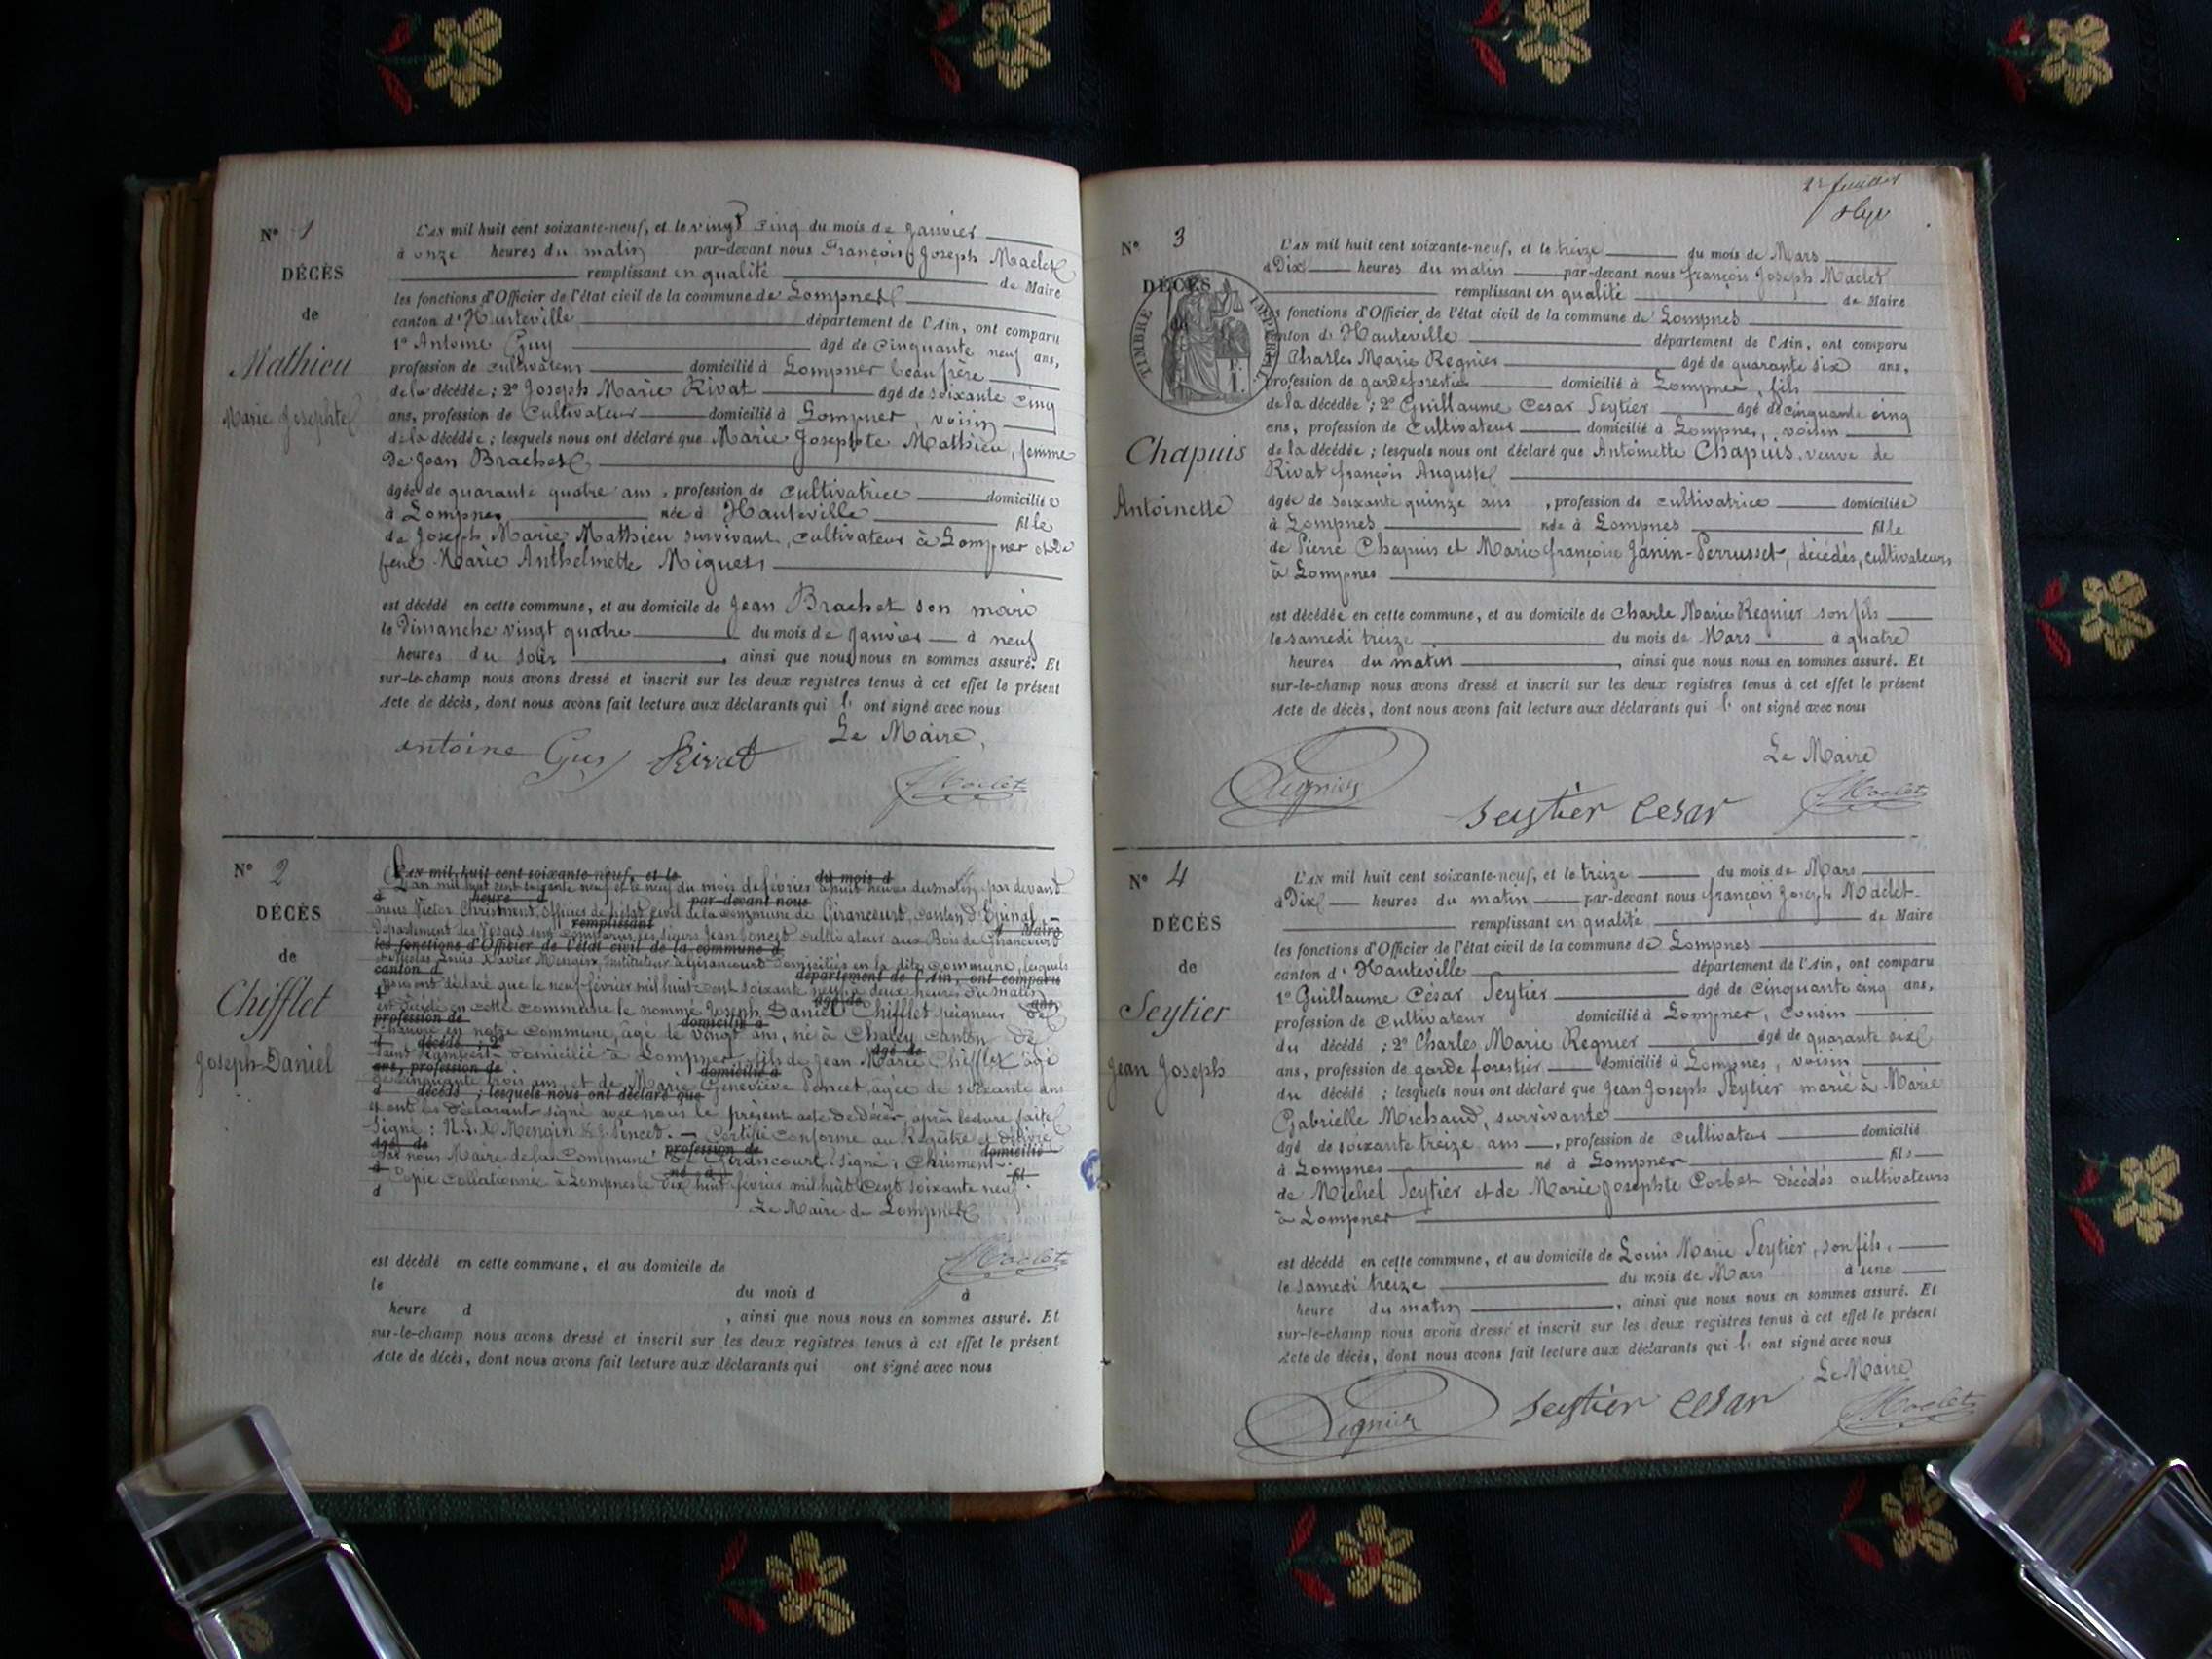 N° 1
DÉCÈS
de
Mathieu
Marie Josephte
L'AN mil huit cent soixante-neuf, et le vingt cinq du mois de Janvier
à onze heures du matin par-devant nous François Joseph Maclet
remplissant en qualité de Maire
les fonctions d'Officier de l'état civil de la commune de Lompnes
canton d'Hauteville département de l'Ain, ont comparu
1° Antoine Guy âgé de cinquante neuf ans,
profession de cultivateur domicilié à Lompnes beau frère
de la décédée ; 2° Joseph Marie Rivat âgé de soixante cinq
ans, profession de Cultivateur domicilié à Lompnes, voisin
de la décédée ; lesquels nous ont déclaré que Marie Josephte Mathieu, femme
de Jean Brachet
âgée de quarante quatre ans, profession de cultivatrice domiciliée
à Lompnes née à Hauteville fille
de Joseph Marie Mathieu survivant, cultivateur à Lompnes et de
feue Marie Anthelmette Miguet
est décédé en cette commune, et au domicile de Jean Brachet son mari
le Dimanche vingt quatre du mois de Janvier à neuf
heures du soir, ainsi que nous nous en sommes assuré. Et
sur-le-champ nous avons dressé et inscrit sur les deux registres tenus à cet effet le présent
Acte de décès, dont nous avons fait lecture aux déclarants qui l' ont signé avec nous
Le Maire,
antoine Guy Rivat
Maclet
N° 2
DÉCÈS
de
Chifflet
Joseph-Daniel
L'AN mil huit cent soixante-neuf, et le du mois d
L'an mil huit cent soixante neuf et le neuf du mois de février à huit heures du matin par devant
à heure d par-devant nous
nous Victor Chrisment, officier de l'état civil de la commune de Girancourt, canton d'Epinal
remplissant Maire
département des Vosges sont comparus les sieurs Jean Poncet cultivateur aux Bois de Girancourt
les fonctions d'Officier de l'état civil de la commune d
et Nicolas Louis Xavier Mengin, Instituteur à Girancourt domiciliés en la dite commune, lesquels
canton d département de l'Ain, ont comparu
nous ont déclaré que le neuf février mil huit cent soixante neuf à deux heures du matin
âgé de ans,
est décédé en cette commune le nommé Joseph Daniel Chifflet peigneur de
profession de domicilié à
chanvre en notre commune, âgé de vingt ans, né à Chaley canton de
d décédé ; 2° âgé de
Saint Rambert domicilié à Lompnes, fils de Jean Marie Chifflet âgé
ans, profession de domicilié à
de cinquante trois ans et de Marie Geneviève Poncet âgée de soixante ans
d décédé ; lesquels nous ont déclaré que
et ont les déclarants signé avec nous le présent acte de décès, après lecture faite
Signé : N. L. X. Mengin & J. Poncet. — Certifié conforme au Registre et délivré
âgé de profession de domicilié
par nous Maire de la Commune de Girancourt. Signé : Chrisment.
à né à fil
Copie collationnée à Lompnes le dix huit février mil huit cent soixante neuf
d
Le Maire de Lompnes
Maclet
est décédé en cette commune, et au domicile de
le du mois d à
heure d , ainsi que nous nous en sommes assuré. Et
sur-le-champ nous avons dressé et inscrit sur les deux registres tenus à cet effet le présent
Acte de décès, dont nous avons fait lecture aux déclarants qui ont signé avec nous
feuillet
N° 3
DÉCÈS
TIMBRE IMPÉRIAL
Chapuis
Antoinette
L'AN mil huit cent soixante-neuf, et le treize du mois de Mars
à Dix heures du matin par-devant nous françois Joseph Maclet
remplissant en qualité de Maire
les fonctions d'Officier de l'état civil de la commune de Lompnes
canton d' Hauteville département de l'Ain, ont comparu
Charles Marie Regnier âgé de quarante six ans,
profession de garde forestier domicilié à Lompnes, fils
de la décédée ; 2° Guillaume Cesar Seytier âgé de cinquante cinq
ans, profession de Cultivateur domicilié à Lompnes, voisin
de la décédée ; lesquels nous ont déclaré que Antoinette Chapuis, veuve de
Rivat françois Auguste
âgée de soixante quinze ans, profession de cultivatrice domiciliée
à Lompnes née à Lompnes fille
de Pierre Chapuis et Marie françoise Janin-Perrusset, décédés, cultivateurs
à Lompnes
est décédée en cette commune, et au domicile de Charle Marie Regnier son fils
le samedi treize du mois de Mars à quatre
heures du matin, ainsi que nous nous en sommes assuré. Et
sur-le-champ nous avons dressé et inscrit sur les deux registres tenus à cet effet le présent
Acte de décès, dont nous avons fait lecture aux déclarants qui l' ont signé avec nous
Le Maire
Regnier Seytier Cesar Maclet
N° 4
DÉCÈS
de
Seytier
Jean Joseph
L'AN mil huit cent soixante-neuf, et le treize du mois de Mars
à Dix heures du matin par-devant nous françois Joseph Maclet
remplissant en qualité de Maire
les fonctions d'Officier de l'état civil de la commune de Lompnes
canton d' Hauteville département de l'Ain, ont comparu
1° Guillaume César Seytier âgé de cinquante cinq ans,
profession de cultivateur domicilié à Lompnes, cousin
du décédé ; 2° Charles Marie Regnier âgé de quarante six
ans, profession de garde forestier domicilié à Lompnes, voisin
du décédé ; lesquels nous ont déclaré que Jean Joseph Seytier marié à Marie
Gabrielle Michaud, survivante
âgé de soixante treize ans, profession de cultivateur domicilié
à Lompnes né à Lompnes fils
de Michel Seytier et de Marie Josephte Corbet décédés cultivateurs
à Lompnes
est décédé en cette commune, et au domicile de Louis Marie Seytier, son fils,
le samedi treize du mois de Mars à une
heure du matin, ainsi que nous nous en sommes assuré. Et
sur-le-champ nous avons dressé et inscrit sur les deux registres tenus à cet effet le présent
Acte de décès, dont nous avons fait lecture aux déclarants qui l' ont signé avec nous
Le Maire
Regnier Seytier Cesar Maclet